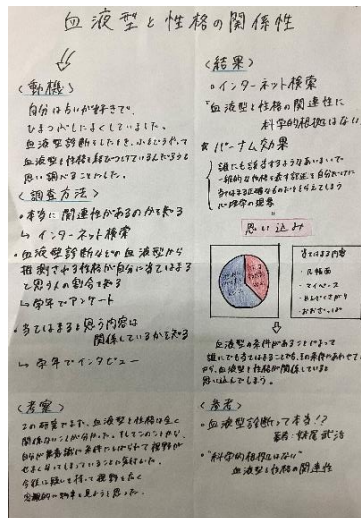 血液型と性格の関係性
〈動機〉
自分は占いが好きで、
ひまつぶしによくしていました。
血液型診断をしたとき、ふとどうやって
血液型と性格を結びつけているんだろうと
思い調べることにした。
〈調査方法〉
・本当に関連性があるのかを知る
↳インターネット検索
・血液型診断などの血液型から
推測される性格が自分に当てはまると
思う人の割合を知る
↳学年でアンケート
・当てはまると思う内容は
関係しているかを知る
↳学年でインタビュー
〈考察〉
この研究でまず、血液型と性格は全く
関係ないことが分かった。そしてこのことから、
自分が無意識に条件にしばられて視野が
せまくなってしまっていることに気付いた。
今後は疑いを持って視野を広く
客観的に物事を見ようと思った。
〈結果〉
・インターネット検索
"血液型と性格の関連性に
科学的根拠はない"
☆バーナム効果
誰にも該当するようなあいまいで
一般的な性格を表す記述を自分だけに
当てはまる正確なものだととらえてしまう
心理学の現象
思い込み
当てはまる内容
・几帳面
・マイペース
・めんどくさがり
・おおざっぱ
血液型の条件があることによって
誰にでも当てはまることでも、その条件にあわせてし
から、血液型と性格が関係していると
思い込んでしまう。
〈参考〉
・血液型診断って本当!?
著者 妹尾武治
・"科学的根拠はない"
血液型と性格の関連性